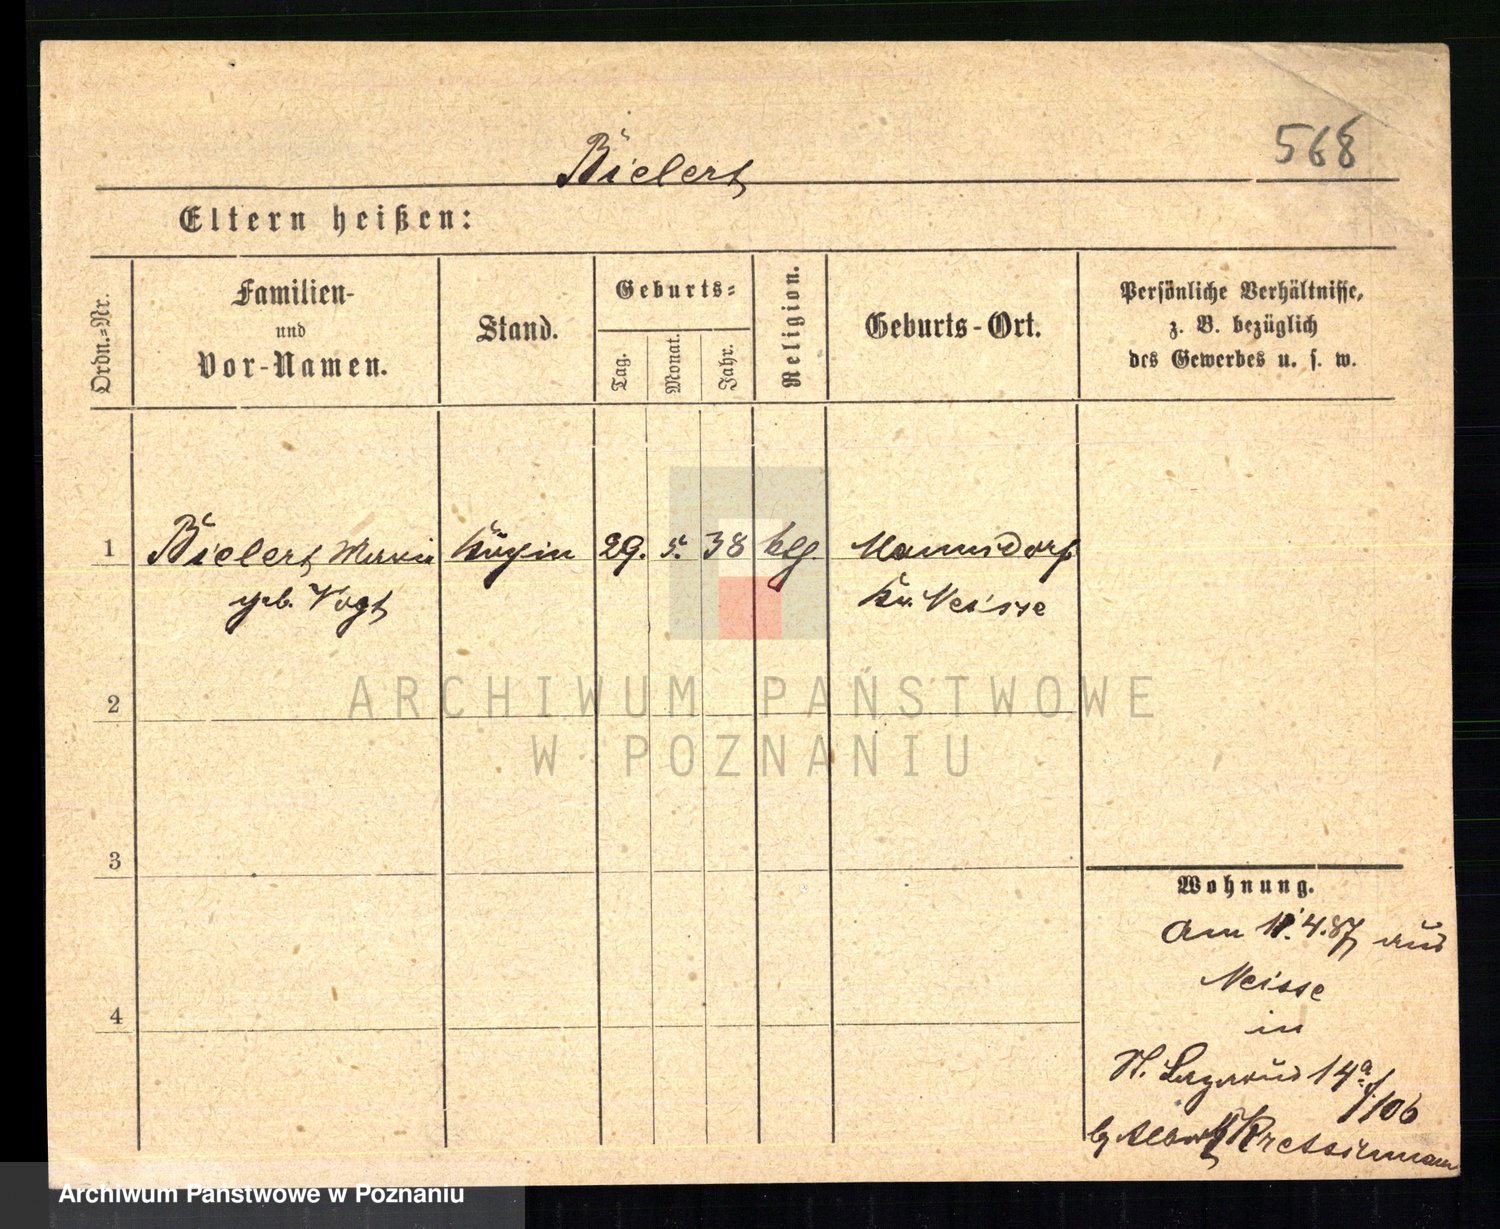 Bielert
568
Eltern heißen:
Ordn.-Nr.
Familien-
und
Vor-Namen.
Stand.
Geburts-
Tag.
Monat.
Jahr.
Religion.
Geburts-Ort.
Persönliche Verhältnisse,
z. B. bezüglich
des Gewerbes u. s. w.
1
Bielert Marie
geb. Vogt
Köchin
29. 5. 38
ktl.
Mannsdorf
Kr. Neisse
2
3
4
Wohnung.
Am 11.4.87 aus
Neisse
in
St. Lazarus 14a/106
by Albert
ARCHIWUM PAŃSTWOWE
W POZNANIU
Archiwum Państwowe w Poznaniu